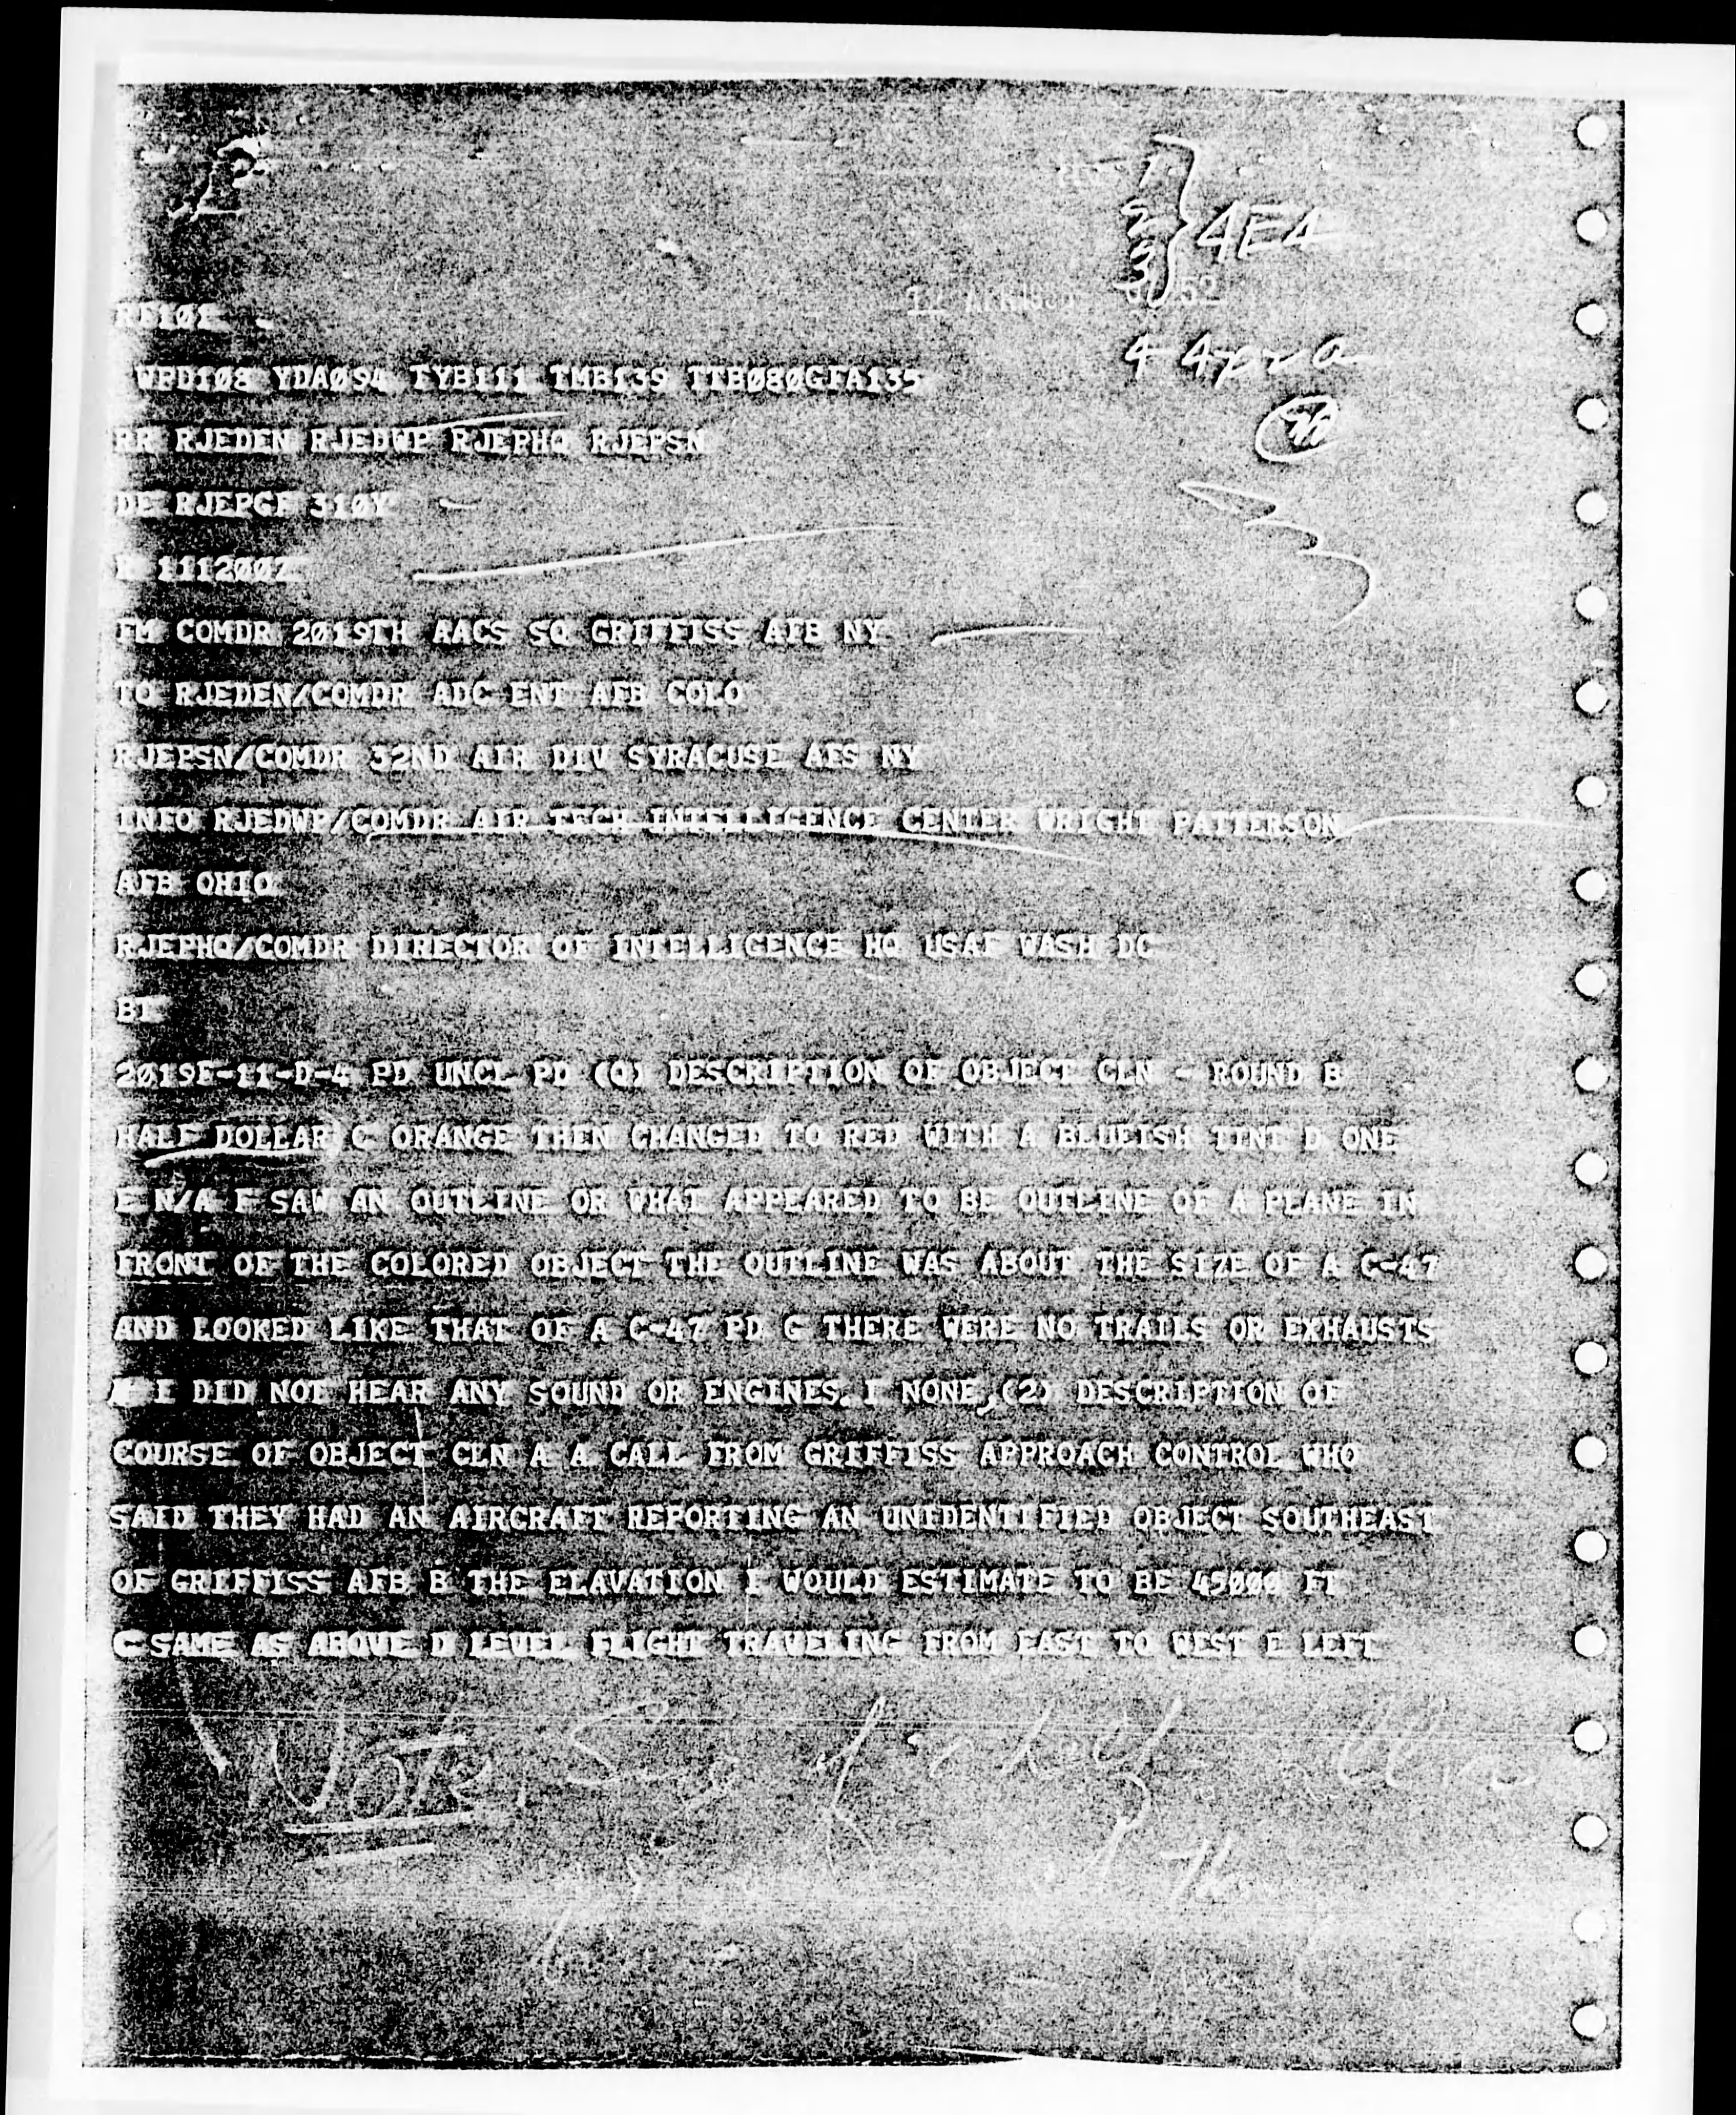 1
2
3
4E4
52
4
WPD108 YDA094 TYB111 TMB139 TTB080GFA135
RR RJEDEN RJEDWP RJEPHQ RJEPSN
DE RJEPGF 310Y
111200Z
FM COMDR 2019TH AACS SQ GRIFFISS AFB NY
TO RJEDEN/COMDR ADC ENT AFB COLO
RJEPSN/COMDR 32ND AIR DIV SYRACUSE AFS NY
INFO RJEDWP/COMDR AIR TECH INTELLIGENCE CENTER WRIGHT PATTERSON
AFB OHIO
RJEPHQ/COMDR DIRECTOR OF INTELLIGENCE HQ USAF WASH DC
BT
2019E-11-D-4 PD UNCL PD (Q) DESCRIPTION OF OBJECT CLN - ROUND B
HALF DOLLAR C ORANGE THEN CHANGED TO RED WITH A BLUEISH TINT D ONE
E N/A F SAW AN OUTLINE OR WHAT APPEARED TO BE OUTLINE OF A PLANE IN
FRONT OF THE COLORED OBJECT THE OUTLINE WAS ABOUT THE SIZE OF A C-47
AND LOOKED LIKE THAT OF A C-47 PD G THERE WERE NO TRAILS OR EXHAUSTS
I DID NOT HEAR ANY SOUND OR ENGINES. I NONE, (2) DESCRIPTION OF
COURSE OF OBJECT CLN A A CALL FROM GRIFFISS APPROACH CONTROL WHO
SAID THEY HAD AN AIRCRAFT REPORTING AN UNIDENTIFIED OBJECT SOUTHEAST
OF GRIFFISS AFB B THE ELAVATION I WOULD ESTIMATE TO BE 45000 FT
C SAME AS ABOVE D LEVEL FLIGHT TRAVELING FROM EAST TO WEST E LEFT
NOTE